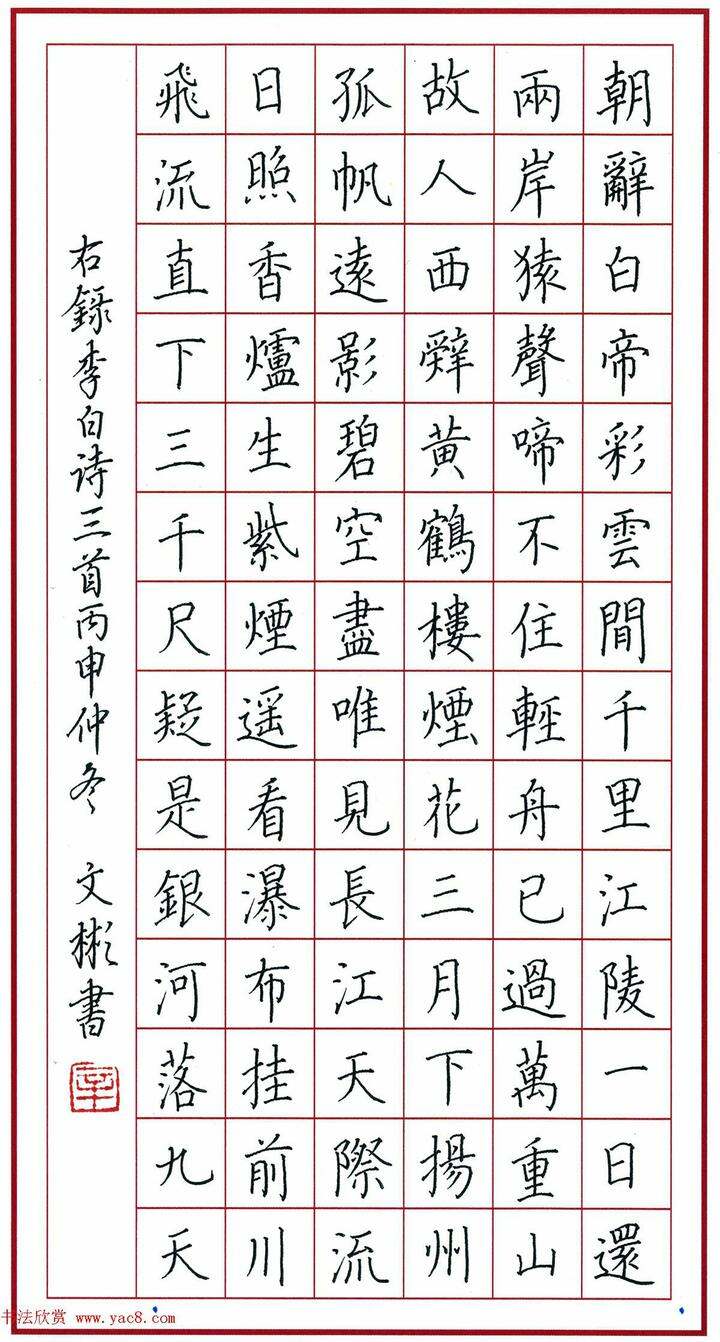 朝辭白帝彩雲間千里江陵一日還
兩岸猿聲啼不住輕舟已過萬重山
故人西辭黃鶴樓煙花三月下揚州
孤帆遠影碧空盡唯見長江天際流
日照香爐生紫煙遥看瀑布挂前川
飛流直下三千尺疑是銀河落九天
右錄李白诗三首丙申仲冬 文彬書
书法欣赏 www.yac8.com